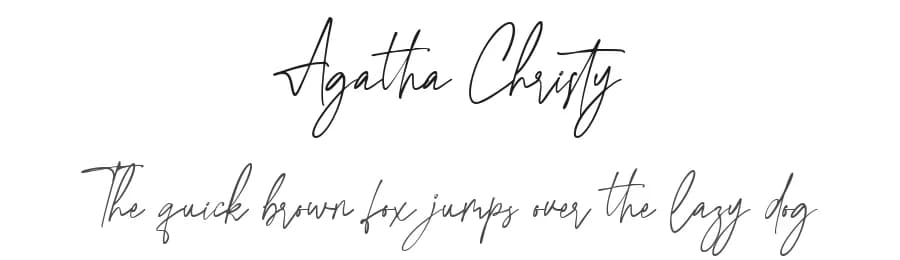 Agatha Christy
The quick brown fox jumps over the lazy dog